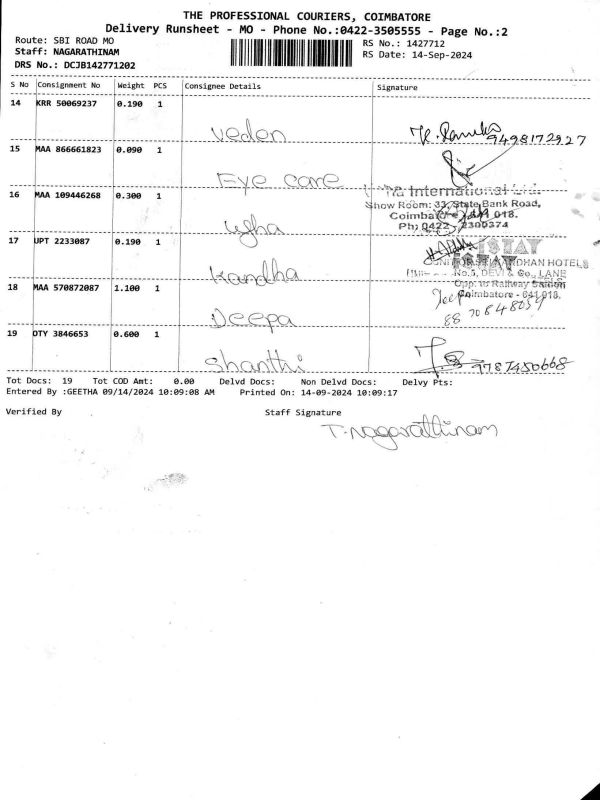 THE PROFESSIONAL COURIERS, COIMBATORE
Delivery Runsheet - MO - Phone No.:0422-3505555 - Page No.:2
Route: SBI ROAD MO
RS No.: 1427712
Staff: NAGARATHINAM
RS Date: 14-Sep-2024
DRS No.: DCJB142771202
S No Consignment No Weight PCS Consignee Details Signature
14 KRR 50069237 0.190 1
Veden
9498172927
15 MAA 866661823 0.090 1
Eye care
16 MAA 109446268 0.300 1
International
Show Room: 33, State Bank Road,
Coimbatore - 641 018.
Ph: 0422 - 2300374
17 UPT 2233087 0.190 1
Kandha
ISTAY
HOTELS
No.5, DEVI & Co., LANE
Opp. to Railway Station
Coimbatore - 641 018.
18 MAA 570872087 1.100 1
Deepa
Deepa
19 OTY 3846653 0.600 1
Shanthi
9787450668
Tot Docs: 19 Tot COD Amt: 0.00 Delvd Docs: Non Delvd Docs: Delvy Pts:
Entered By :GEETHA 09/14/2024 10:09:08 AM Printed On: 14-09-2024 10:09:17
Verified By Staff Signature
T.Nagarathinam